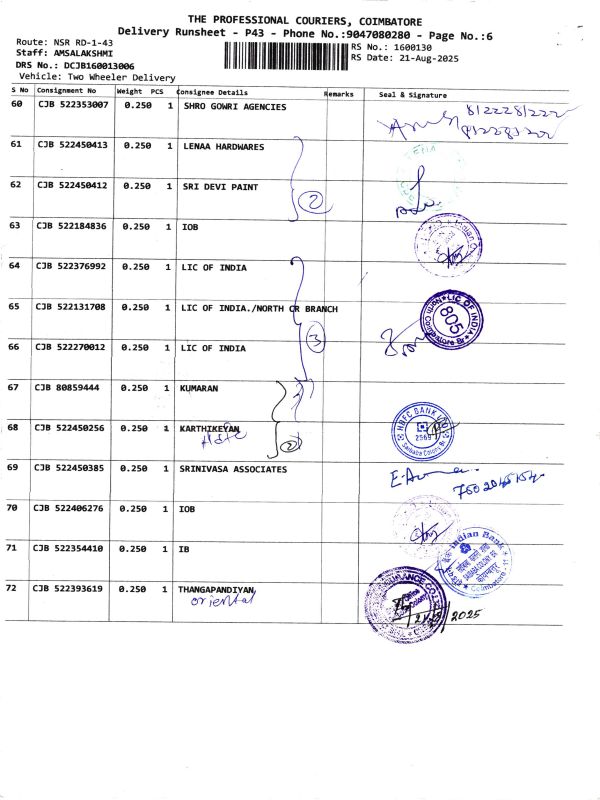 THE PROFESSIONAL COURIERS, COIMBATORE
Delivery Runsheet - P43 - Phone No.:9047080280 - Page No.:6
Route: NSR RD-1-43
RS No.: 1600130
Staff: AMSALAKSHMI
RS Date: 21-Aug-2025
DRS No.: DCJB160013006
Vehicle: Two Wheeler Delivery
S No Consignment No Weight PCS Consignee Details Remarks Seal & Signature
60 CJB 522353007 0.250 1 SHRO GOWRI AGENCIES
61 CJB 522450413 0.250 1 LENAA HARDWARES
62 CJB 522450412 0.250 1 SRI DEVI PAINT
2
63 CJB 522184836 0.250 1 IOB
64 CJB 522376992 0.250 1 LIC OF INDIA
65 CJB 522131708 0.250 1 LIC OF INDIA./NORTH CR BRANCH
LIC OF INDIA
805
3
66 CJB 522270012 0.250 1 LIC OF INDIA
67 CJB 80859444 0.250 1 KUMARAN
HDFC BANK
2569
68 CJB 522450256 0.250 1 KARTHIKEYAN
2
69 CJB 522450385 0.250 1 SRINIVASA ASSOCIATES
70 CJB 522406276 0.250 1 IOB
71 CJB 522354410 0.250 1 IB
Indian Bank
72 CJB 522393619 0.250 1 THANGAPANDIYAN
oriental
2025